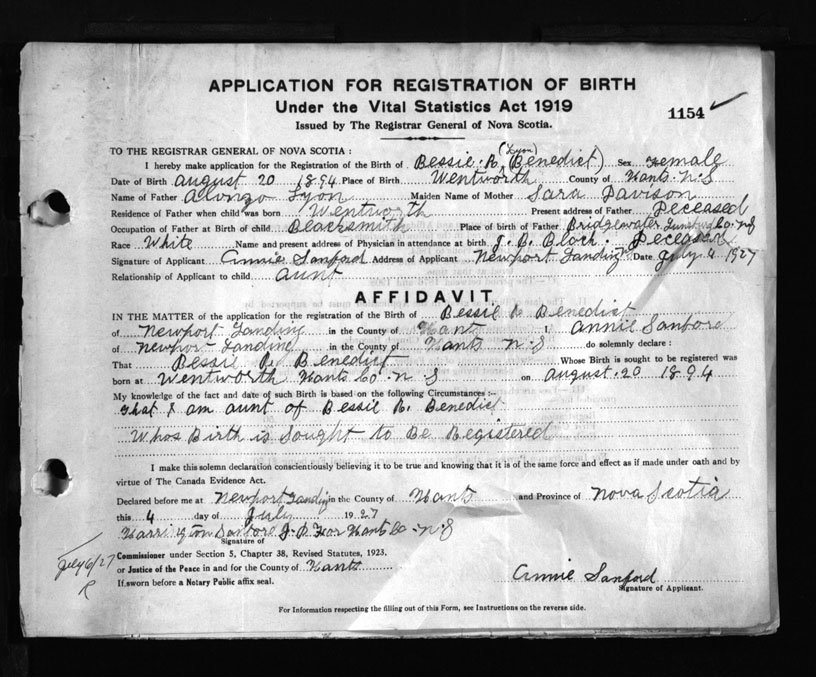 APPLICATION FOR REGISTRATION OF BIRTH
Under the Vital Statistics Act 1919
1154
Issued by The Registrar General of Nova Scotia.
TO THE REGISTRAR GENERAL OF NOVA SCOTIA :
(Lyon)
I hereby make application for the Registration of the Birth of Bessie R. Benedict) Sex Female
Date of Birth August 20 1894 Place of Birth Wentworth County of Hants N.S
Name of Father Alonzo Lyon Maiden Name of Mother Sara Davison
Residence of Father when child was born Wentworth Present address of Father Deceased
Occupation of Father at Birth of child Blacksmith Place of birth of Father Bridgewater Co. NS
Race White Name and present address of Physician in attendance at birth J. B. Black. Deceased
Signature of Applicant Annie Sanford Address of Applicant Newport Landing Date July 4 1927
Relationship of Applicant to child aunt
AFFIDAVIT
IN THE MATTER of the application for the registration of Birth of Bessie R Benedict
of Newport Landing in the County of Hants I, Annie Sanford
of Newport Landing in the County of Hants N S do solemnly declare :
That Bessie R. Benedict Whose Birth is sought to be registered was
born at Wentworth Hants Co. N S on August 20 1894
My knowledge of the fact and date of such Birth is based on the following Circumstances :-
That I am aunt of Bessie R. Benedict
Whos Birth is Sought to Be Registered
I make this solemn declaration conscientiously believing it to be true and knowing that it is of the same force and effect as if made under oath and by
virtue of The Canada Evidence Act.
Declared before me at Newport Landing in the County of Hants and Province of Nova Scotia
this 4 day of July 1927
Harrington Sanford J. P. For Hants Co. N.S
Signature of
Commissioner under Section 5, Chapter 38, Revised Statutes, 1923.
July 6/27
or Justice of the Peace in and for the County of Hants
R
If sworn before a Notary Public affix seal.
Annie Sanford
Signature of Applicant.
For Information respecting the filling out of this Form, see Instructions on the reverse side.